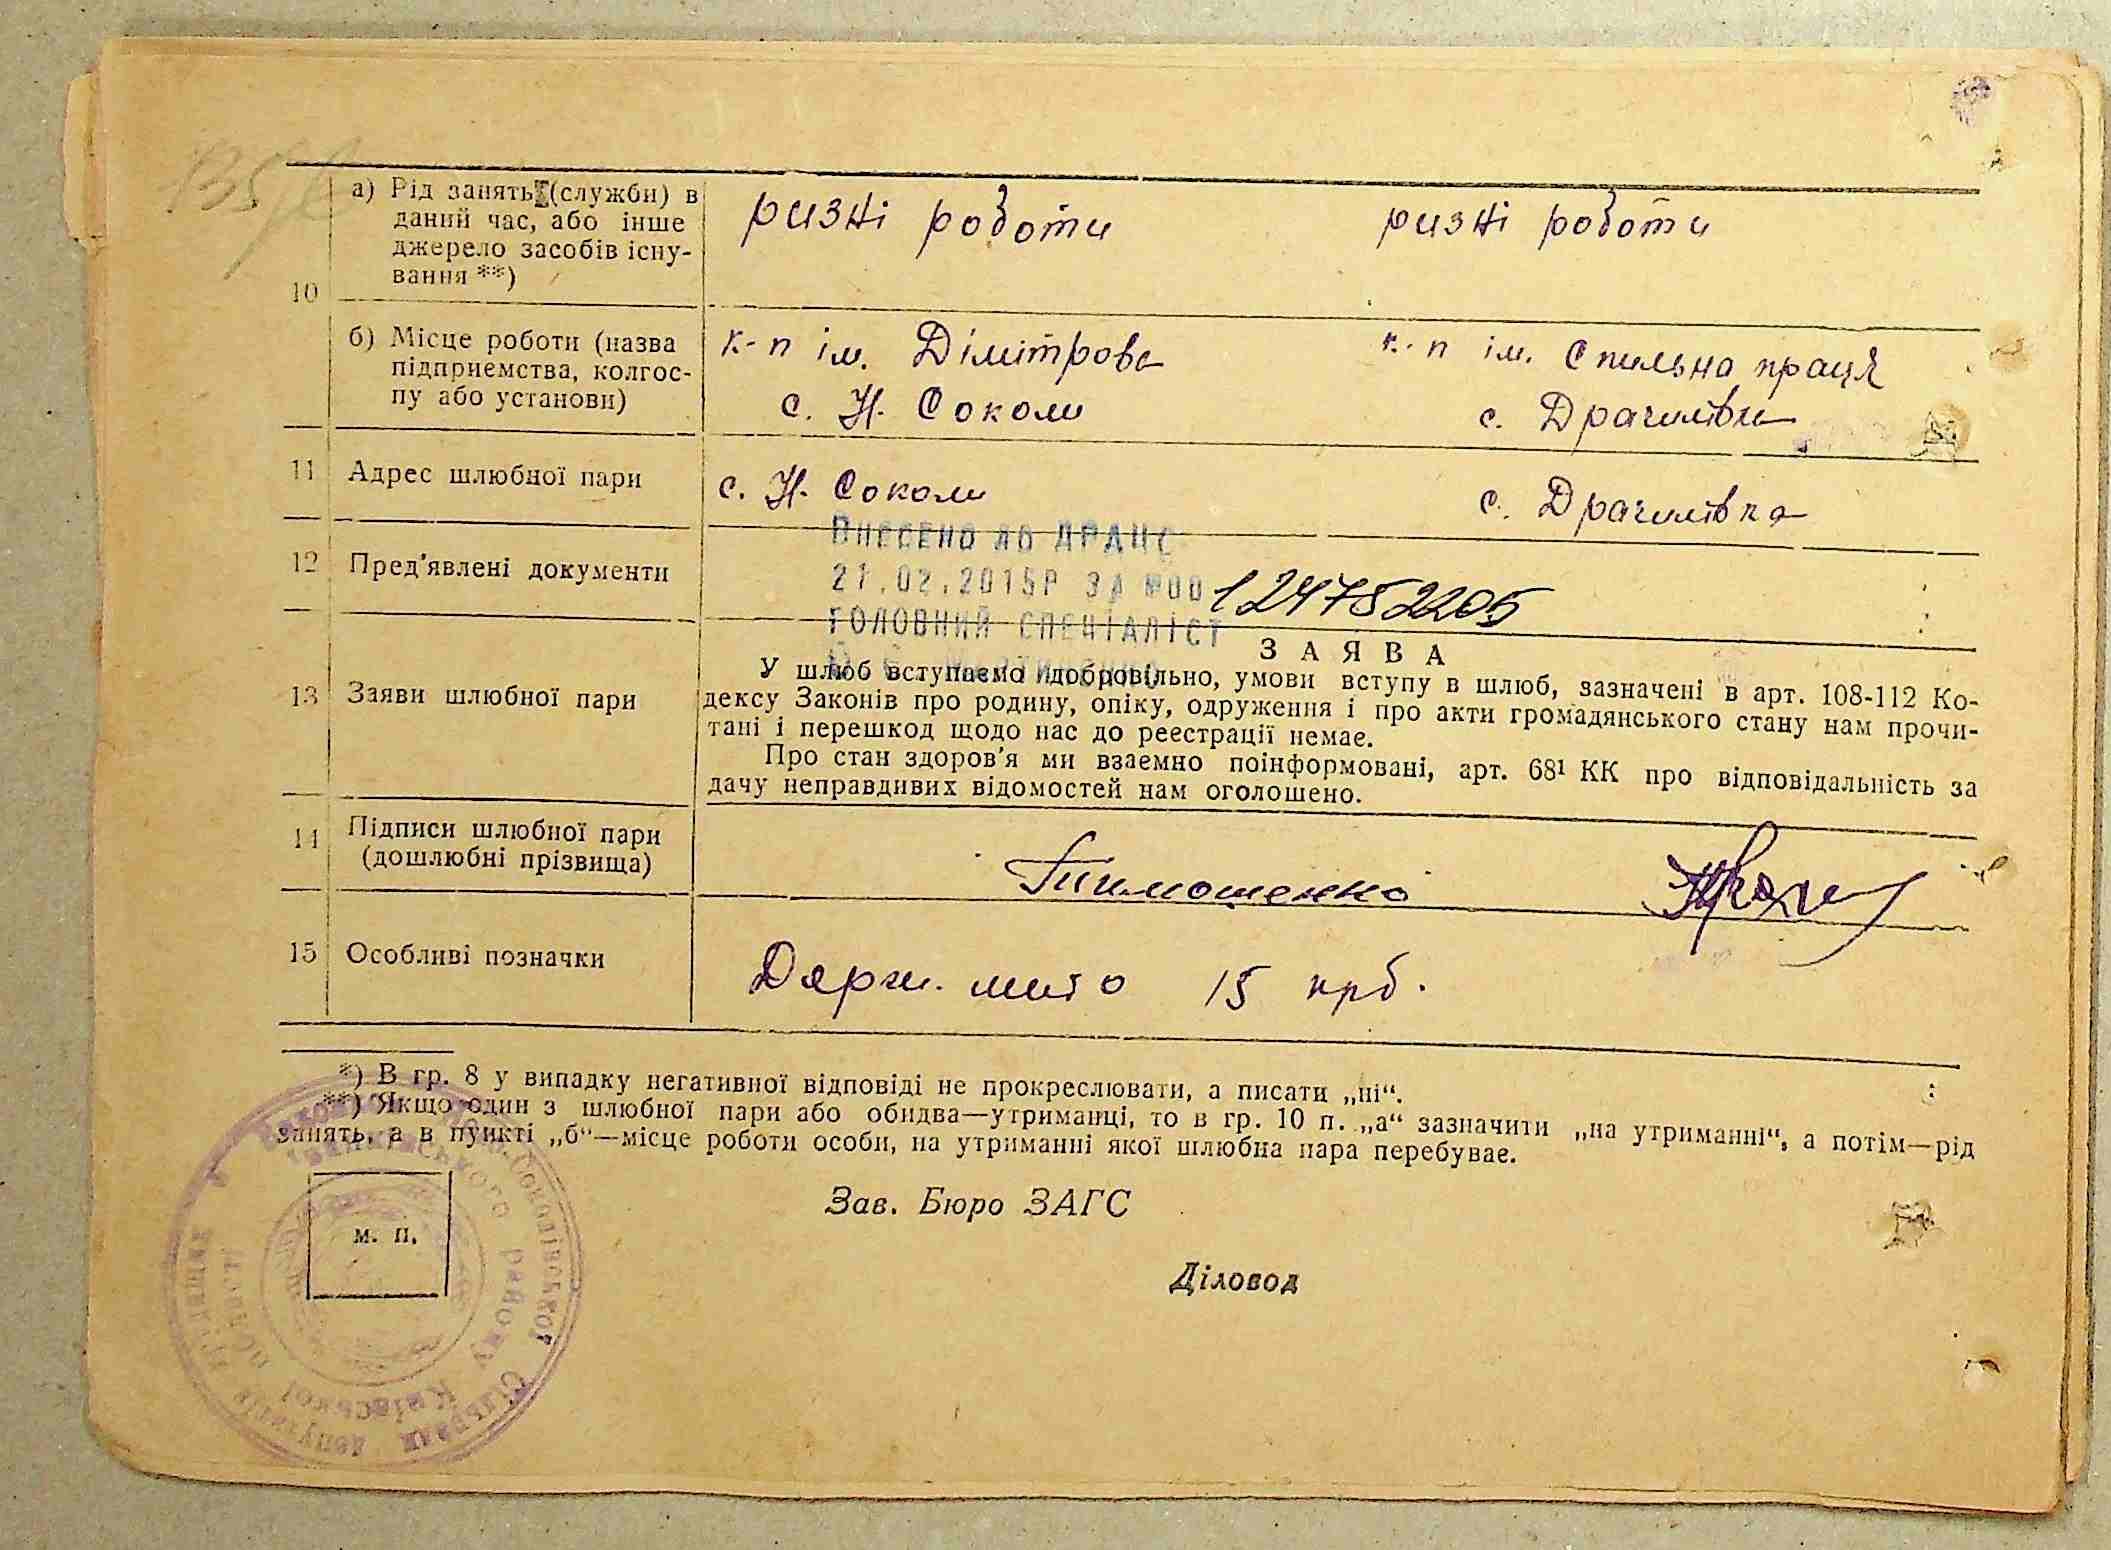 10
а) Рід занять (служби) в
даний час, або інше
джерело засобів існу-
вання **)
ризні роботи
ризні роботи
б) Місце роботи (назва
підприємства, колгос-
пу або установи)
к-п ім. Дімітрова
с. Н. Соколи
к-п ім. Спильна праця
с. Драчилівка
11 Адрес шлюбної пари
с. Н. Соколи
с. Драчилівка
12 Пред'явлені документи
Внесено до ДРАЦС
21.02.2015р за №00124752205
Головний спеціаліст
13 Заяви шлюбної пари
ЗАЯВА
У шлюб вступаємо добровільно, умови вступу в шлюб, зазначені в арт. 108-112 Ко-
дексу Законів про родину, опіку, одруження і про акти громадянського стану нам прочи-
тані і перешкод щодо нас до реєстрації немає.
Про стан здоров'я ми взаємно поінформовані, арт. 68¹ КК про відповідальність за
дачу неправдивих відомостей нам оголошено.
14 Підписи шлюбної пари
(дошлюбні прізвища)
Тимошенко
15 Особливі позначки
Держ. мито 15 крб.
*) В гр. 8 у випадку негативної відповіді не прокреслювати, а писати „ні“.
**) Якщо один з шлюбної пари або обидва—утриманці, то в гр. 10 п. „а“ зазначити „на утриманні“, а потім—рід
занять, а в пункті „б“—місце роботи особи, на утриманні якої шлюбна пара перебуває.
Зав. Бюро ЗАГС
м. п.
Діловод
Сільради депутатів трудящих
району Київської області